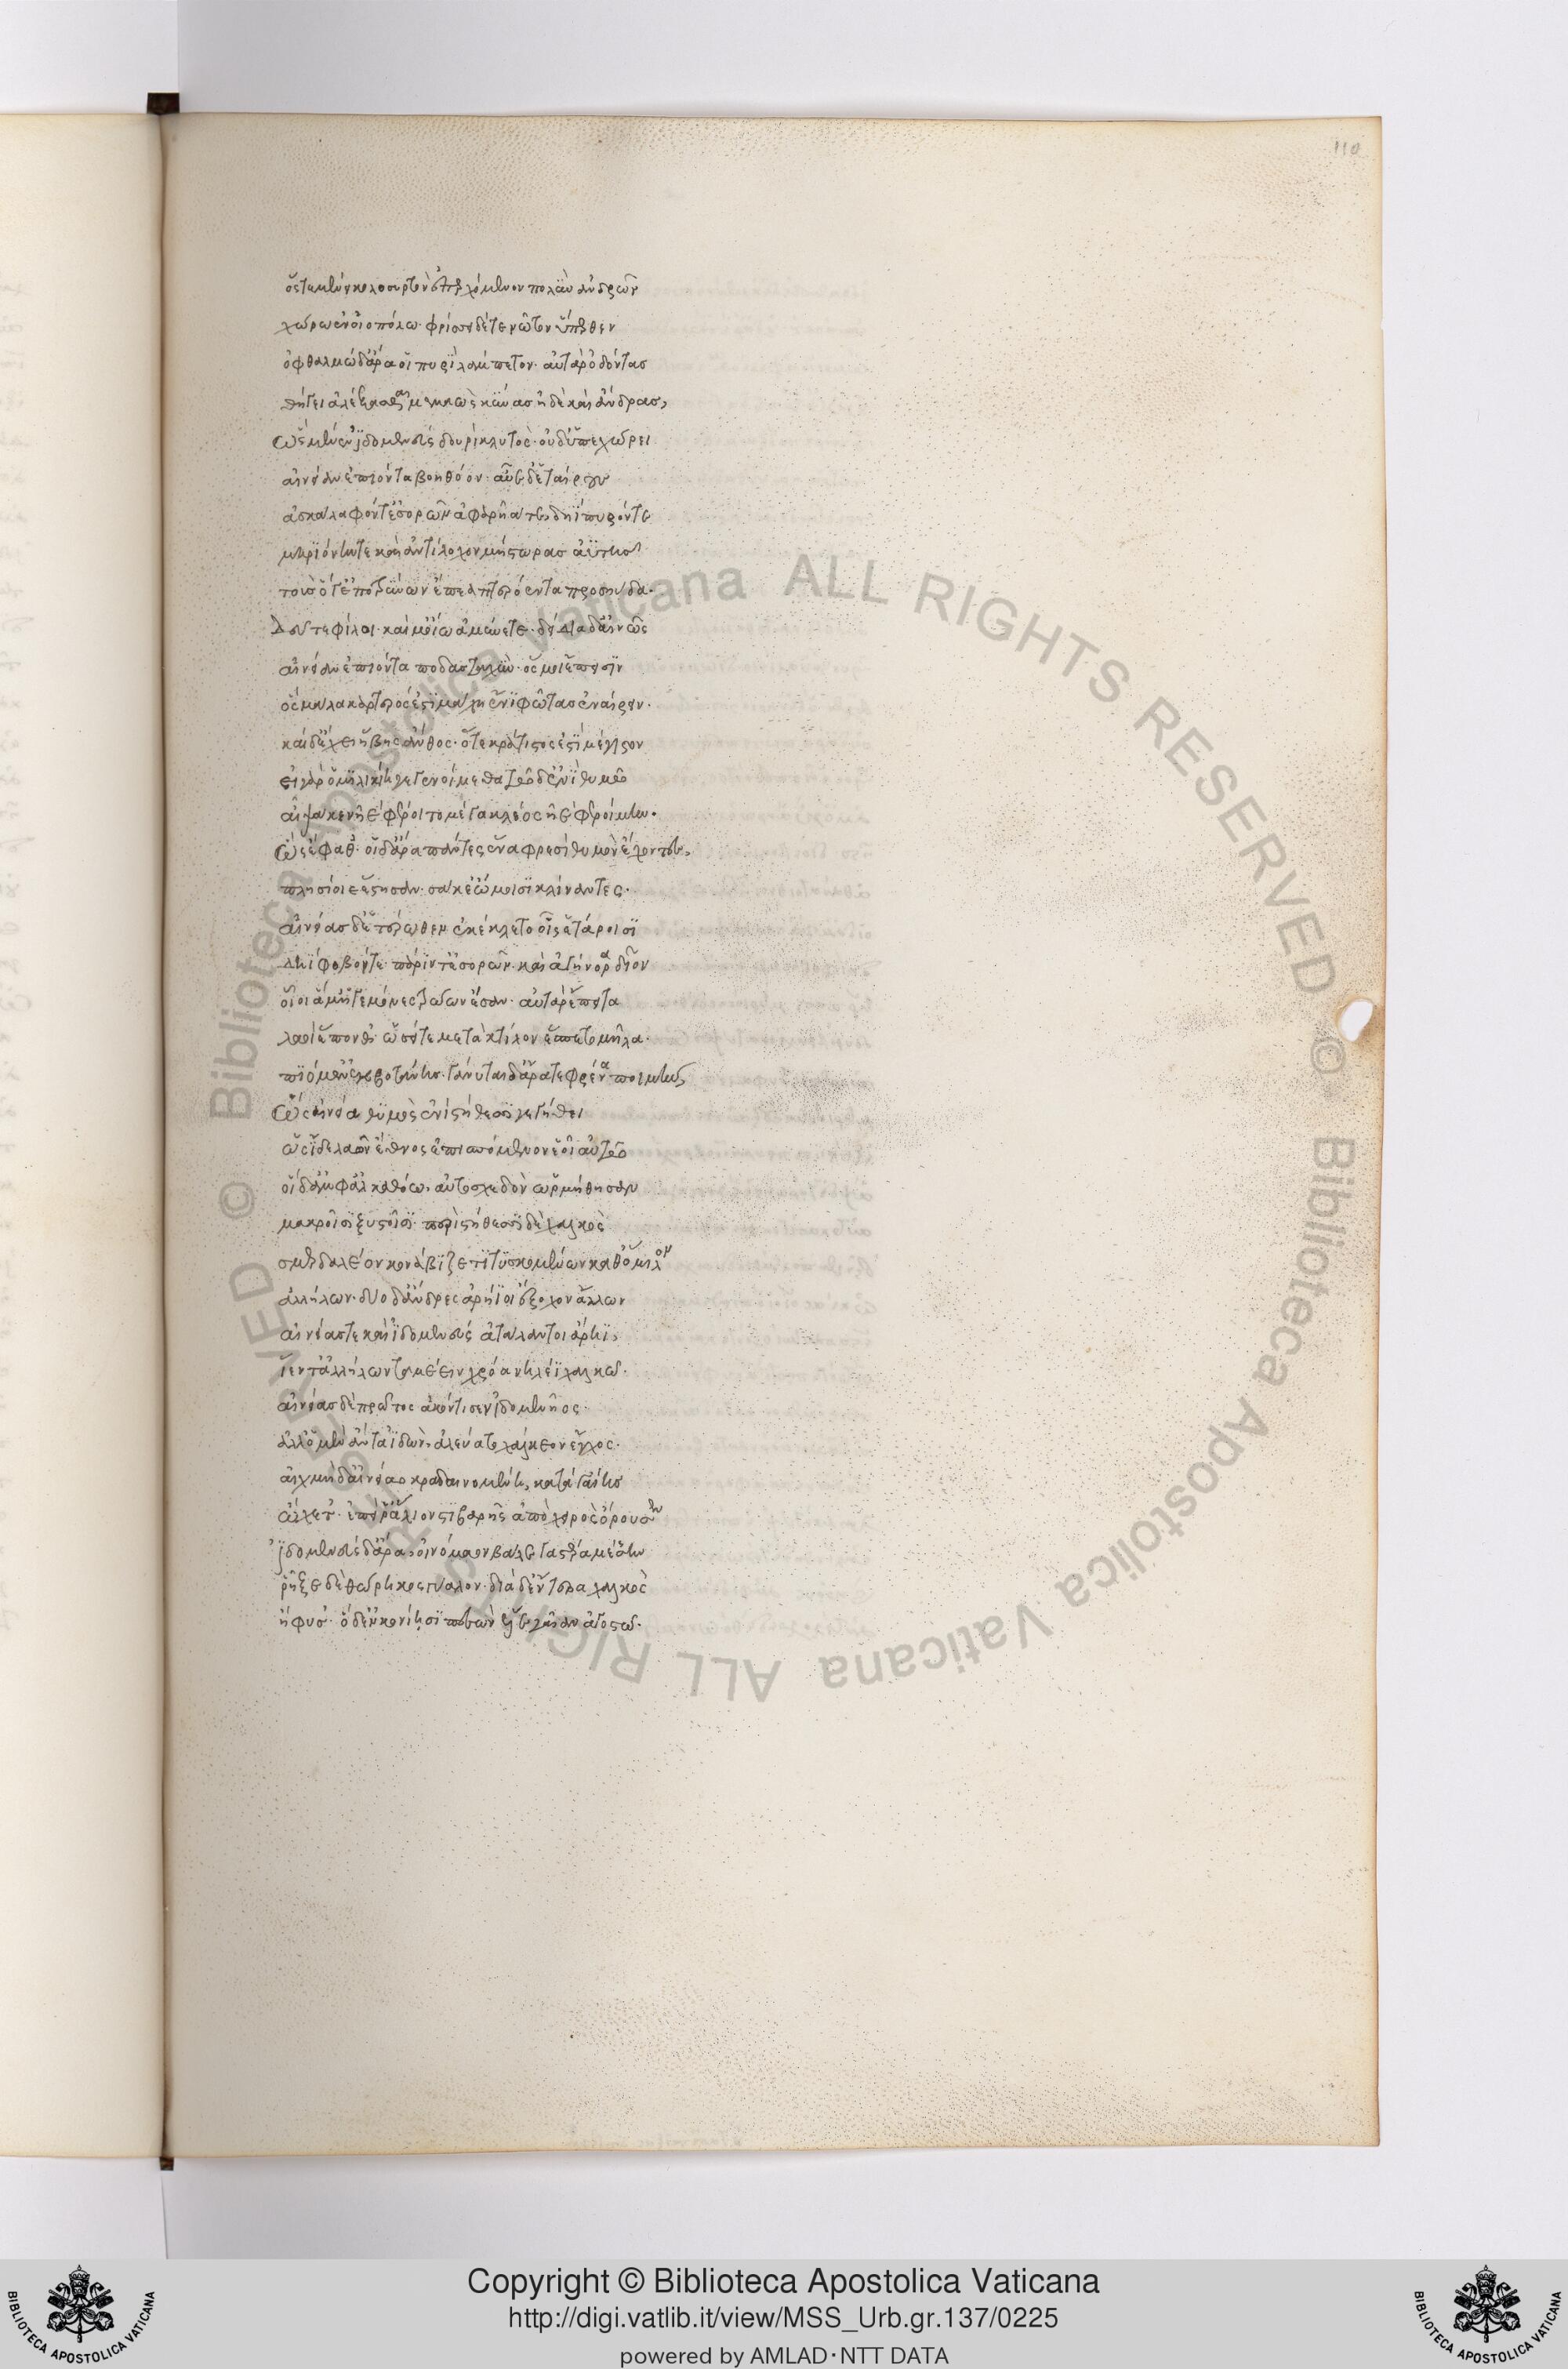 110
ὅς τε μένει κολοσυρτὸν ἐπερχόμενον πολὺν ἀνδρῶν
χώρω ἐν οἰοπόλω· φρίσσει δέ τε νῶτον ὕπερθεν
ὀφθαλμὼ δ' ἄρα οἱ πυρὶ λάμπετον· αὐτὰρ ὀδόντας
θήγει ἀλέξασθαι μεμαὼς κύνας ἠδὲ καὶ ἄνδρας,
ὣς μένεν ἰδομενεὺς δουρίκλυτος· οὐδ' ὑπεχώρει
αἰνείαν ἐπιόντα βοηθόον· αὖε δ' ἑταίρους
ἀσκάλαφόν τ' ἐσορῶν ἀφαρῆά τε δηίπυρόν τε
μηριόνην τε καὶ ἀντίλοχον μήστωρας ἀϋτῆς
τοὺς ὅ γ' ἐποτρύνων ἔπεα πτερόεντα προσηύδα·
Δεῦτε φίλοι· καί μ' οἴω ἀμύνετε· δείδια δ' αἰνῶς
αἰνείαν ἐπιόντα πόδας ταχὺν· ὅς μοι ἔπεισιν
ὃς μάλα καρτερός ἐστι μάχη ἔνι φῶτας ἐναίρειν·
καὶ δ' ἔχει ἥβης ἄνθος· ὅ τε κράτος ἐστὶ μέγιστον
εἰ γὰρ ὁμηλικίη γε γενοίμεθα τῶδ' ἐνὶ θυμῶ
αἶψά κεν ἠὲ φέροιτο μέγα κλέος ἠὲ φεροίμην·
ὣς ἔφαθ'· οἱ δ' ἄρα πάντες ἕνα φρεσὶ θυμὸν ἔχοντες,
πλησίοι ἔστησαν· σάκε' ὤμοισι κλίναντες·
αἰνείας δ' ἑτέρωθεν ἐκέκλετο οἷς ἑτάροισι
Δηίφοβόν τε πάριν τ' ἐσορῶν· καὶ ἀγήνορα δῖον
οἵ οἱ ἅμ' ἡγεμόνες τρώων ἔσαν· αὐτὰρ ἔπειτα
λαοὶ ἕπονθ'· ὡσεί τε μετὰ κτίλον ἕσπετο μῆλα·
πιόμεν' ἐκ βοτάνης· γάνυται δ' ἄρα τε φρένα ποιμὴν
ὣς αἰνεία θυμὸς ἐνὶ στήθεσσι γεγήθει
ὡς ἴδε λαῶν ἔθνος ἐπισπόμενον ἑοῖ αὐτῶ
οἱ δ' ἀμφ' ἀλκαθόω· αὐτοσχεδὸν ὡρμήθησαν
μακροῖσι ξυστοῖσι· περὶ στήθεσσι δὲ χαλκὸς
σμερδαλέον κονάβιζε τιτυσκομένων καθ' ὅμιλον
ἀλλήλων· δύο δ' ἄνδρες ἀρήϊοι ἔξοχον ἄλλων
αἰνείας τε καὶ ἰδομενεὺς ἀτάλαντοι ἄρηϊ,
ἵεντ' ἀλλήλων ταμέειν χρόα νηλέϊ χαλκῶ·
αἰνείας δὲ πρῶτος ἀκόντισεν ἰδομενῆος·
ἀλλ' ὁ μὲν ἄντα ἰδὼν, ἀλεύατο χάλκεον ἔγχος·
αἰχμὴ δ' αἰνείαο κραδαινομένη, κατὰ γαίης
ὤχετ'· ἐπεί ῥ' ἅλιον στιβαρῆς ἀπὸ χειρὸς ὄρουσεν
ἰδομενεὺς δ' ἄρα οἰνόμαον βάλε γαστέρα μέσσην
ῥῆξε δὲ θώρηκος γύαλον· διὰ δ' ἔντερα χαλκὸς
ἤφυσ'· ὁ δ' ἐν κονίησι πεσὼν ἕλε γαῖαν ἀγοστῶ·
© Biblioteca Apostolica Vaticana ALL RIGHTS RESERVED
© Biblioteca Apostolica Vaticana ALL RIGHTS RESERVED
Copyright © Biblioteca Apostolica Vaticana
http://digi.vatlib.it/view/MSS_Urb.gr.137/0225
powered by AMLAD·NTT DATA
BIBLIOTECA APOSTOLICA VATICANA
BIBLIOTECA APOSTOLICA VATICANA